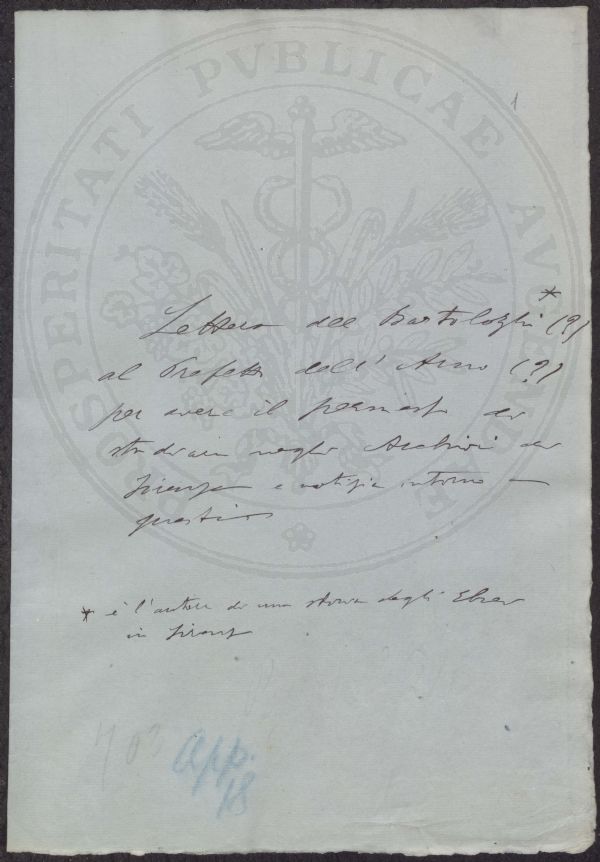 1
PROSPERITATI PVBLICAE AVGENDAE
Lettera del Bartolozzi * (?)
al Prefetto dell' Arno (?)
per avere il permesso di
studiare negli Archivi di
Firenze e notizie intorno a
questi
* è l'autore di una storia degli Ebrei
in Firenze
403
App.
18